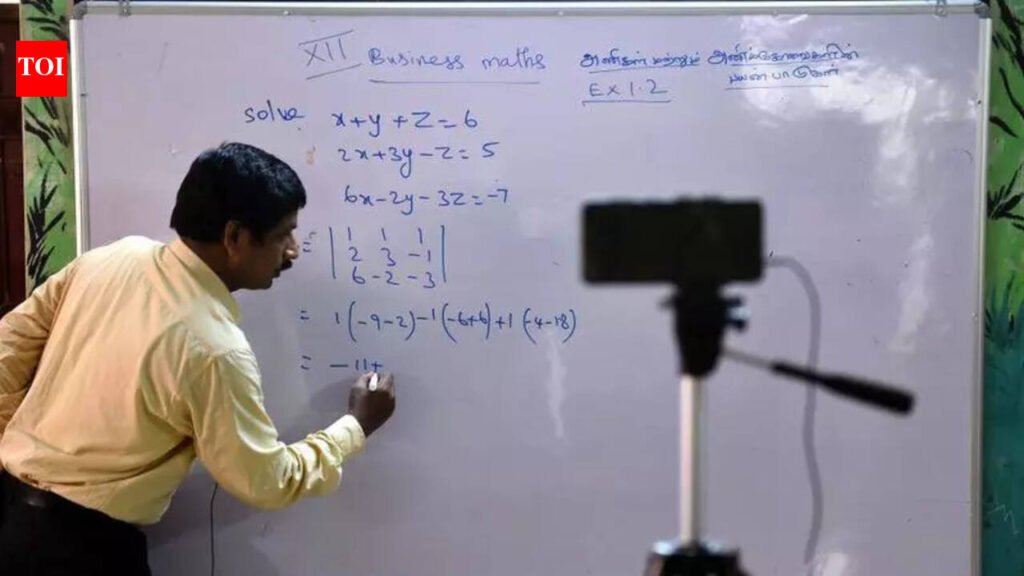 TOI
XII Business maths
அணிகள் மற்றும் அணிக்கோவைகளின்
பயன்பாடுகள்
Ex 1.2
solve x+y+z=6
2x+3y-z=5
6x-2y-3z=-7
= | 1 1 1 |
| 2 3 -1 |
| 6 -2 -3 |
= 1(-9-2)-1(-6+6)+1(-4-18)
= -11+